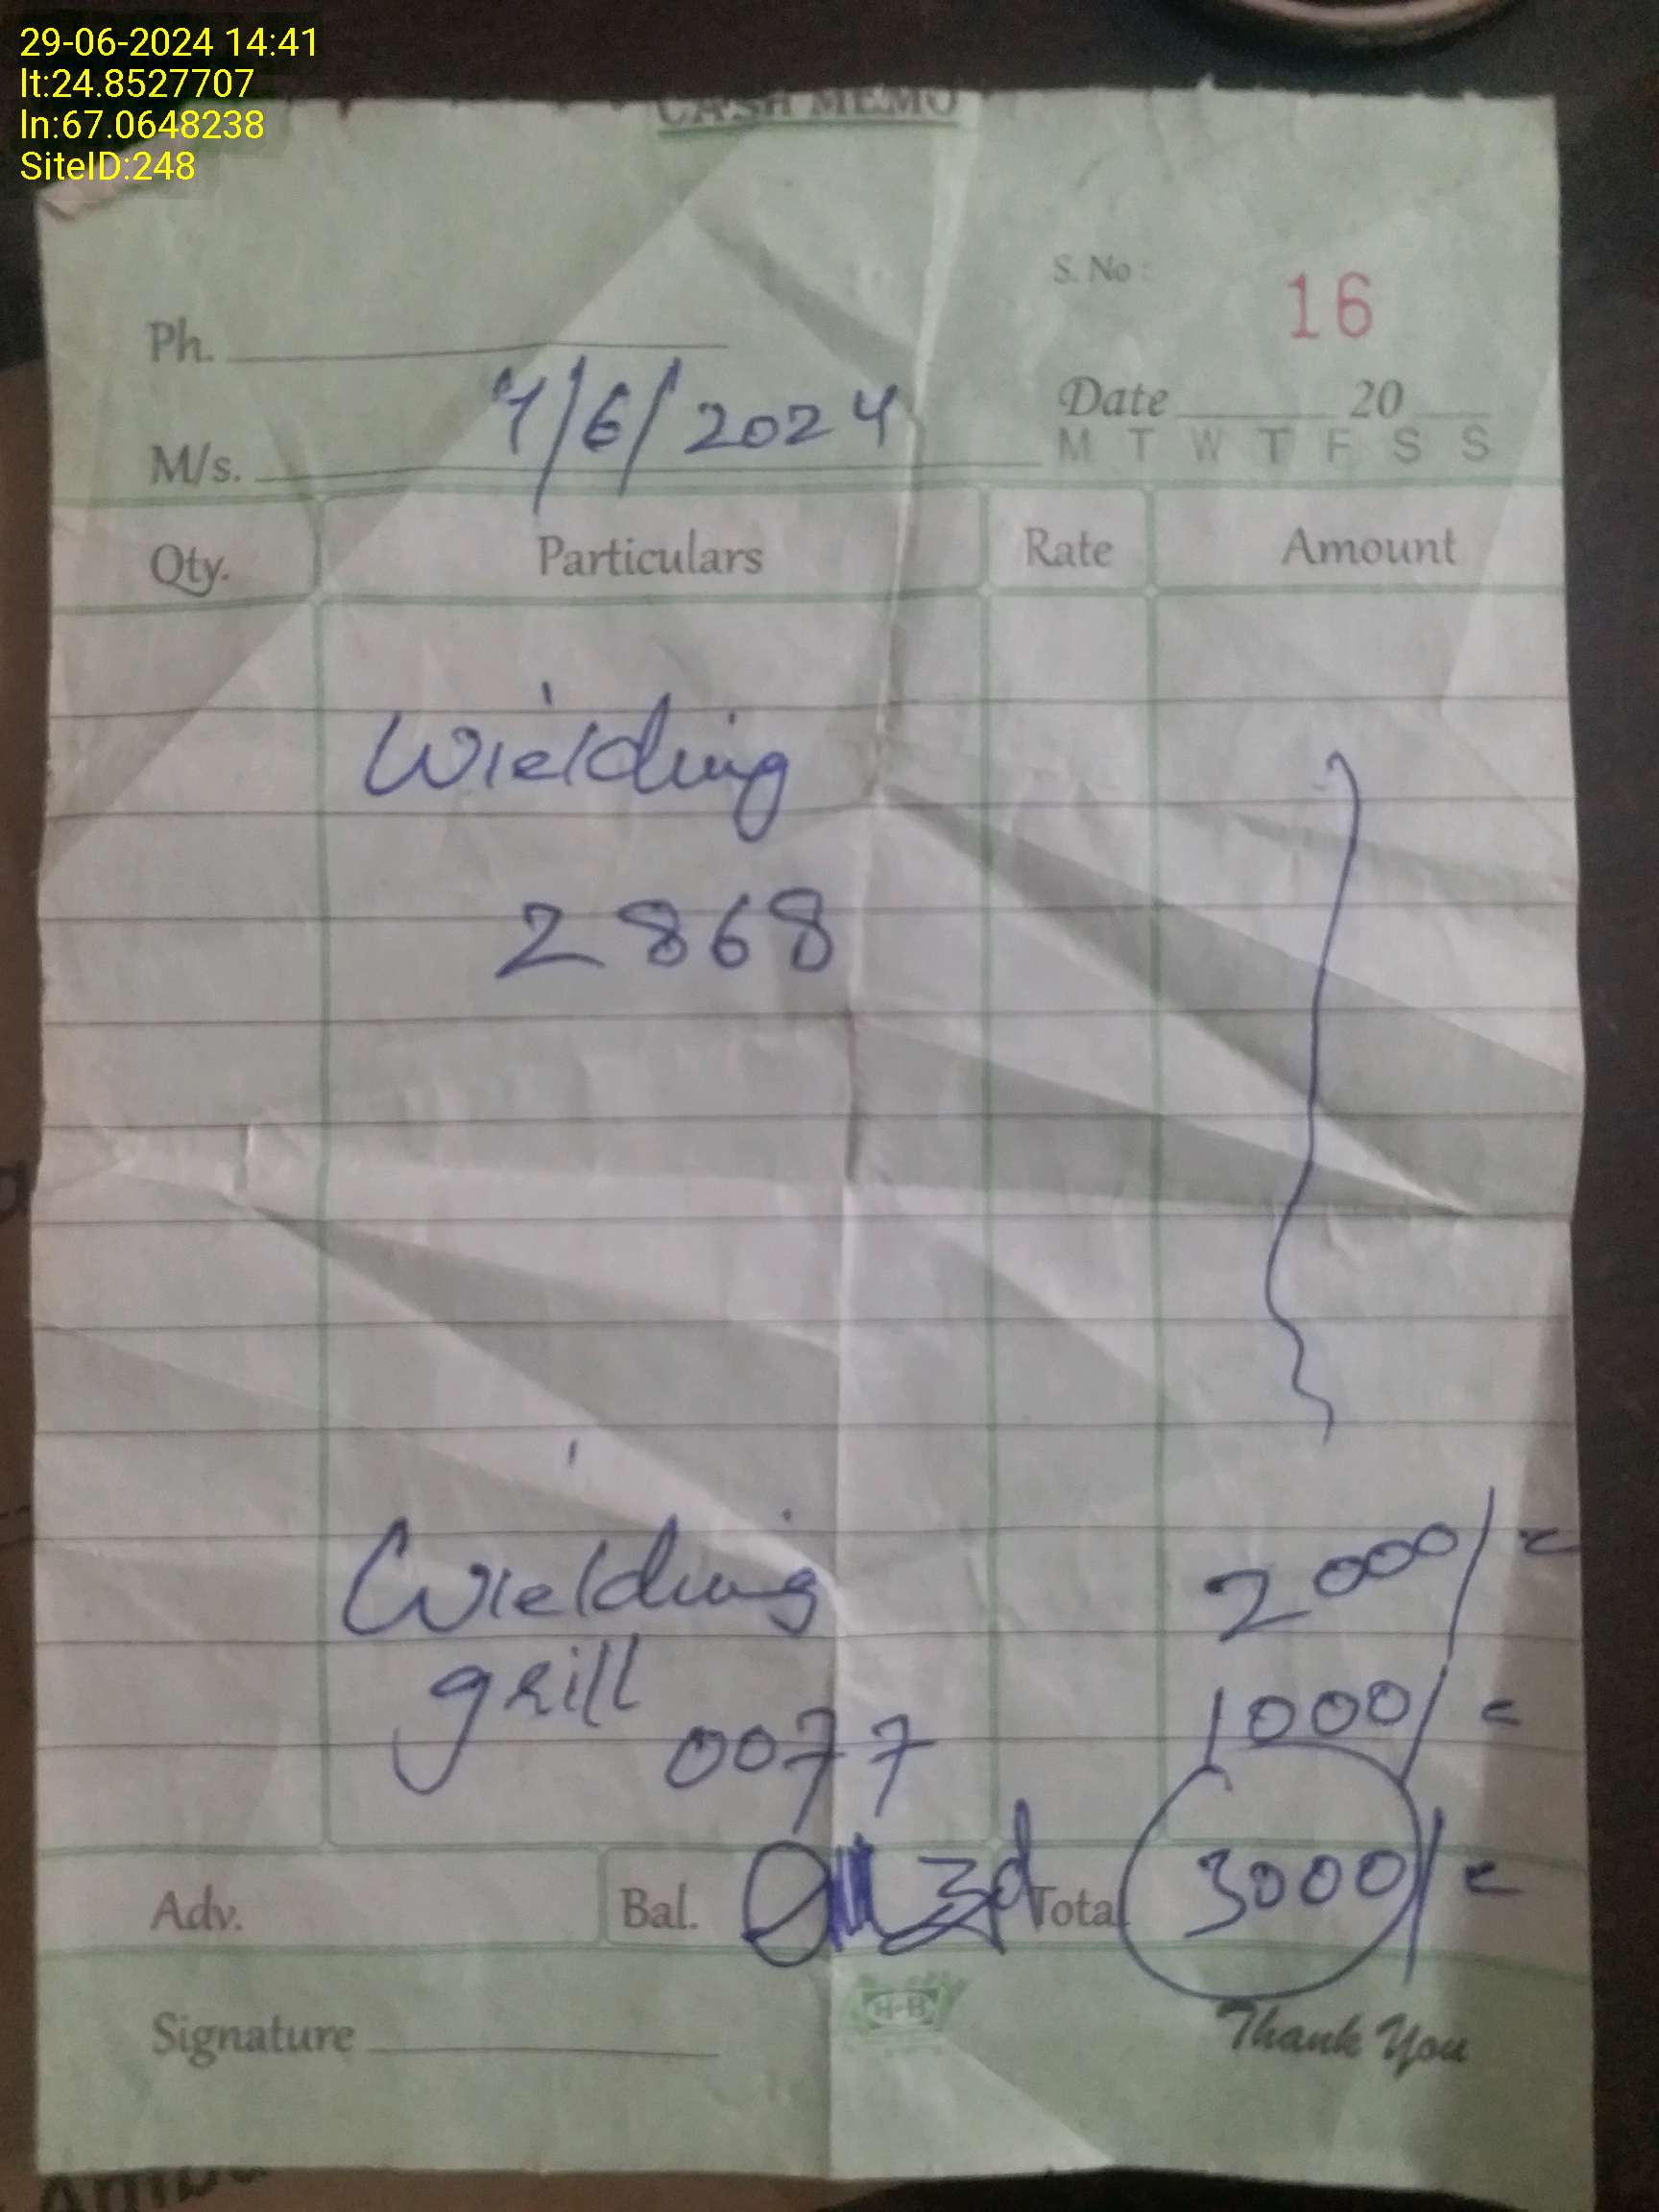 29-06-2024 14:41
lt:24.8527707
ln:67.0648238
SiteID:248
CASH MEMO
S. No : 16
Ph.
Date 20
7/6/2024
M/s.
M T W T F S S
Qty. Particulars Rate Amount
Wielding
2868
Wielding 2000/=
grill 1000/=
0077
Adv. Bal. Total 3000/=
H-H
Signature Thank You